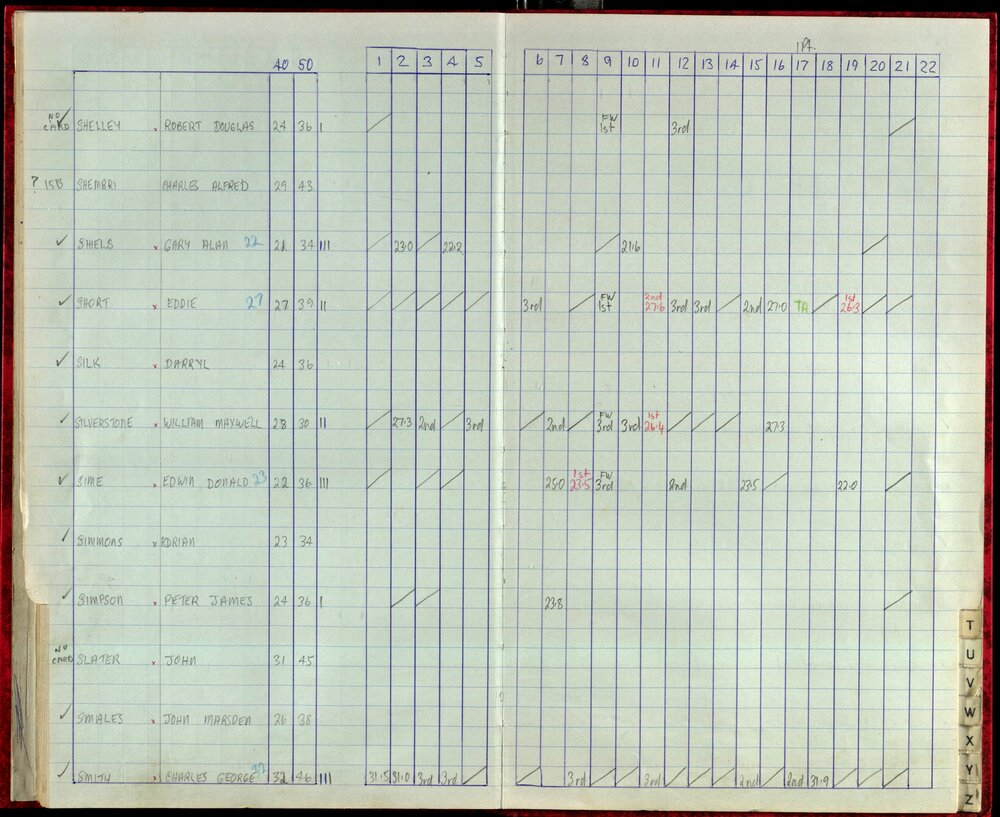 1 Pt.
40 50 1 2 3 4 5 6 7 8 9 10 11 12 13 14 15 16 17 18 19 20 21 22
NO CARD ✓ SHELLEY . ROBERT DOUGLAS 24 36 I / FW 1st 3rd /
? 15B SHEMBRI CHARLES ALFRED 29 43
✓ SHIELS x GARY ALAN 22 21 34 III / 23.0 / 22.2 / 21.6 /
✓ SHORT x EDDIE 27 27 39 II / / / / / 3rd / FW 1st 2nd 27.6 3rd 3rd / 2nd 27.0 TA / 1st 26.3 / /
✓ SILK x DARRYL 24 36
✓ SILVERSTONE x WILLIAM MAXWELL 28 30 II / 27.3 2nd / 3rd / 2nd / FW 3rd 3rd 1st 26.4 / / / 27.3
✓ SIME . EDWIN DONALD 23 22 36 III / / / 25.0 1st 23.5 FW 3rd 2nd 23.5 / 22.0 /
✓ SIMMONS x ADRIAN 23 34
✓ SIMPSON x PETER JAMES 24 36 I / / 23.8 /
NO CARD SLATER x JOHN 31 45
✓ SMALES x JOHN MARSDEN 26 38
✓ SMITH x CHARLES GEORGE 32 46 IIII 31.5 31.0 3rd 3rd / / 3rd / / 3rd / / / 2nd / 2nd 31.9 / / /
T
U
V
W
X
Y
Z